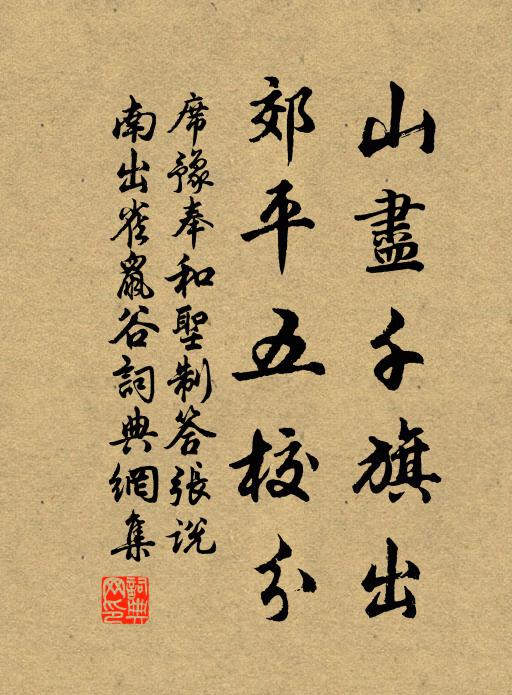 山盡千旗出
郊平五校分
席豫奉和聖制答張說
南出雀鼠谷詞典網集
詞典网印